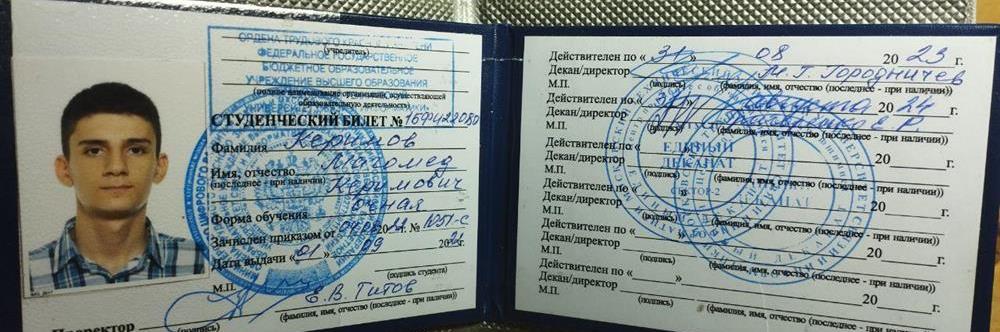 ОРДЕНА ТРУДОВОГО КРАСНОГО ЗНАМЕНИ
(учредитель)
ФЕДЕРАЛЬНОЕ ГОСУДАРСТВЕННОЕ
БЮДЖЕТНОЕ ОБРАЗОВАТЕЛЬНОЕ
УЧРЕЖДЕНИЕ ВЫСШЕГО ОБРАЗОВАНИЯ
(полное наименование организации, осуществляющей
образовательную деятельность)
СТУДЕНЧЕСКИЙ БИЛЕТ №
Фамилия Керимов
Имя, отчество Магомед
(последнее - при наличии) Керимович
Форма обучения очная
Зачислен приказом от 20 г. №
Дата выдачи « 01 » 09 2021
(подпись студента)
М.П. Е.В. Титов
(подпись) (фамилия, имя, отчество (последнее - при наличии))
Действителен по « 31 » 08 20 23 г.
Декан/директор М.Г. Городничев
М.П. (подпись) (фамилия, имя, отчество (последнее - при наличии))
Действителен по « » августа 20 24 г.
Декан/директор
М.П. (подпись) (фамилия, имя, отчество (последнее - при наличии))
Действителен по « » 20 г.
Декан/директор
М.П. (подпись) (фамилия, имя, отчество (последнее - при наличии))
Действителен по « » 20 г.
Декан/директор
М.П. (подпись) (фамилия, имя, отчество (последнее - при наличии))
Действителен по « » 20 г.
Декан/директор
М.П. (подпись) (фамилия, имя, отчество (последнее - при наличии))
Действителен по « » 20 г.
Декан/директор
М.П. (подпись) (фамилия, имя, отчество (последнее - при наличии))
ЕДИНЫЙ
ДЕКАНАТ